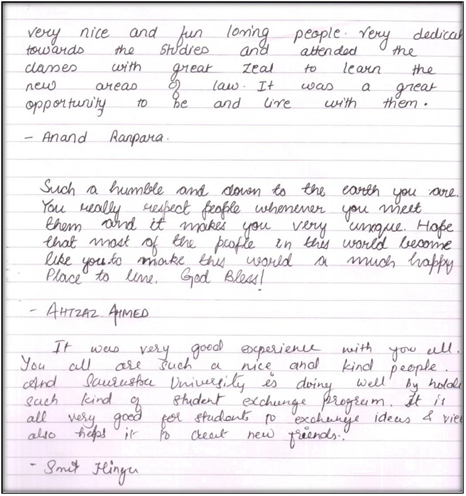 very nice and fun loving people. Very dedicat
towards the studies and attended the
classes with great zeal to learn the
new areas of law. It was a great
opportunity to be and live with them.
- Anand Ranpara.
Such a humble and down to the earth you are.
You really respect people whenever you meet
them and it makes you very unique. Hope
that most of the people in this world become
like you to make this world a much happy
Place to live. God Bless!
- AHTZAZ AHMED
It was very good experience with you all.
You all are such a nice and kind people.
And University is doing well by holdi
such kind of student exchange program. It is
all very good for students to exchange ideas & vie
also helps it to creat new friends.
- Smit